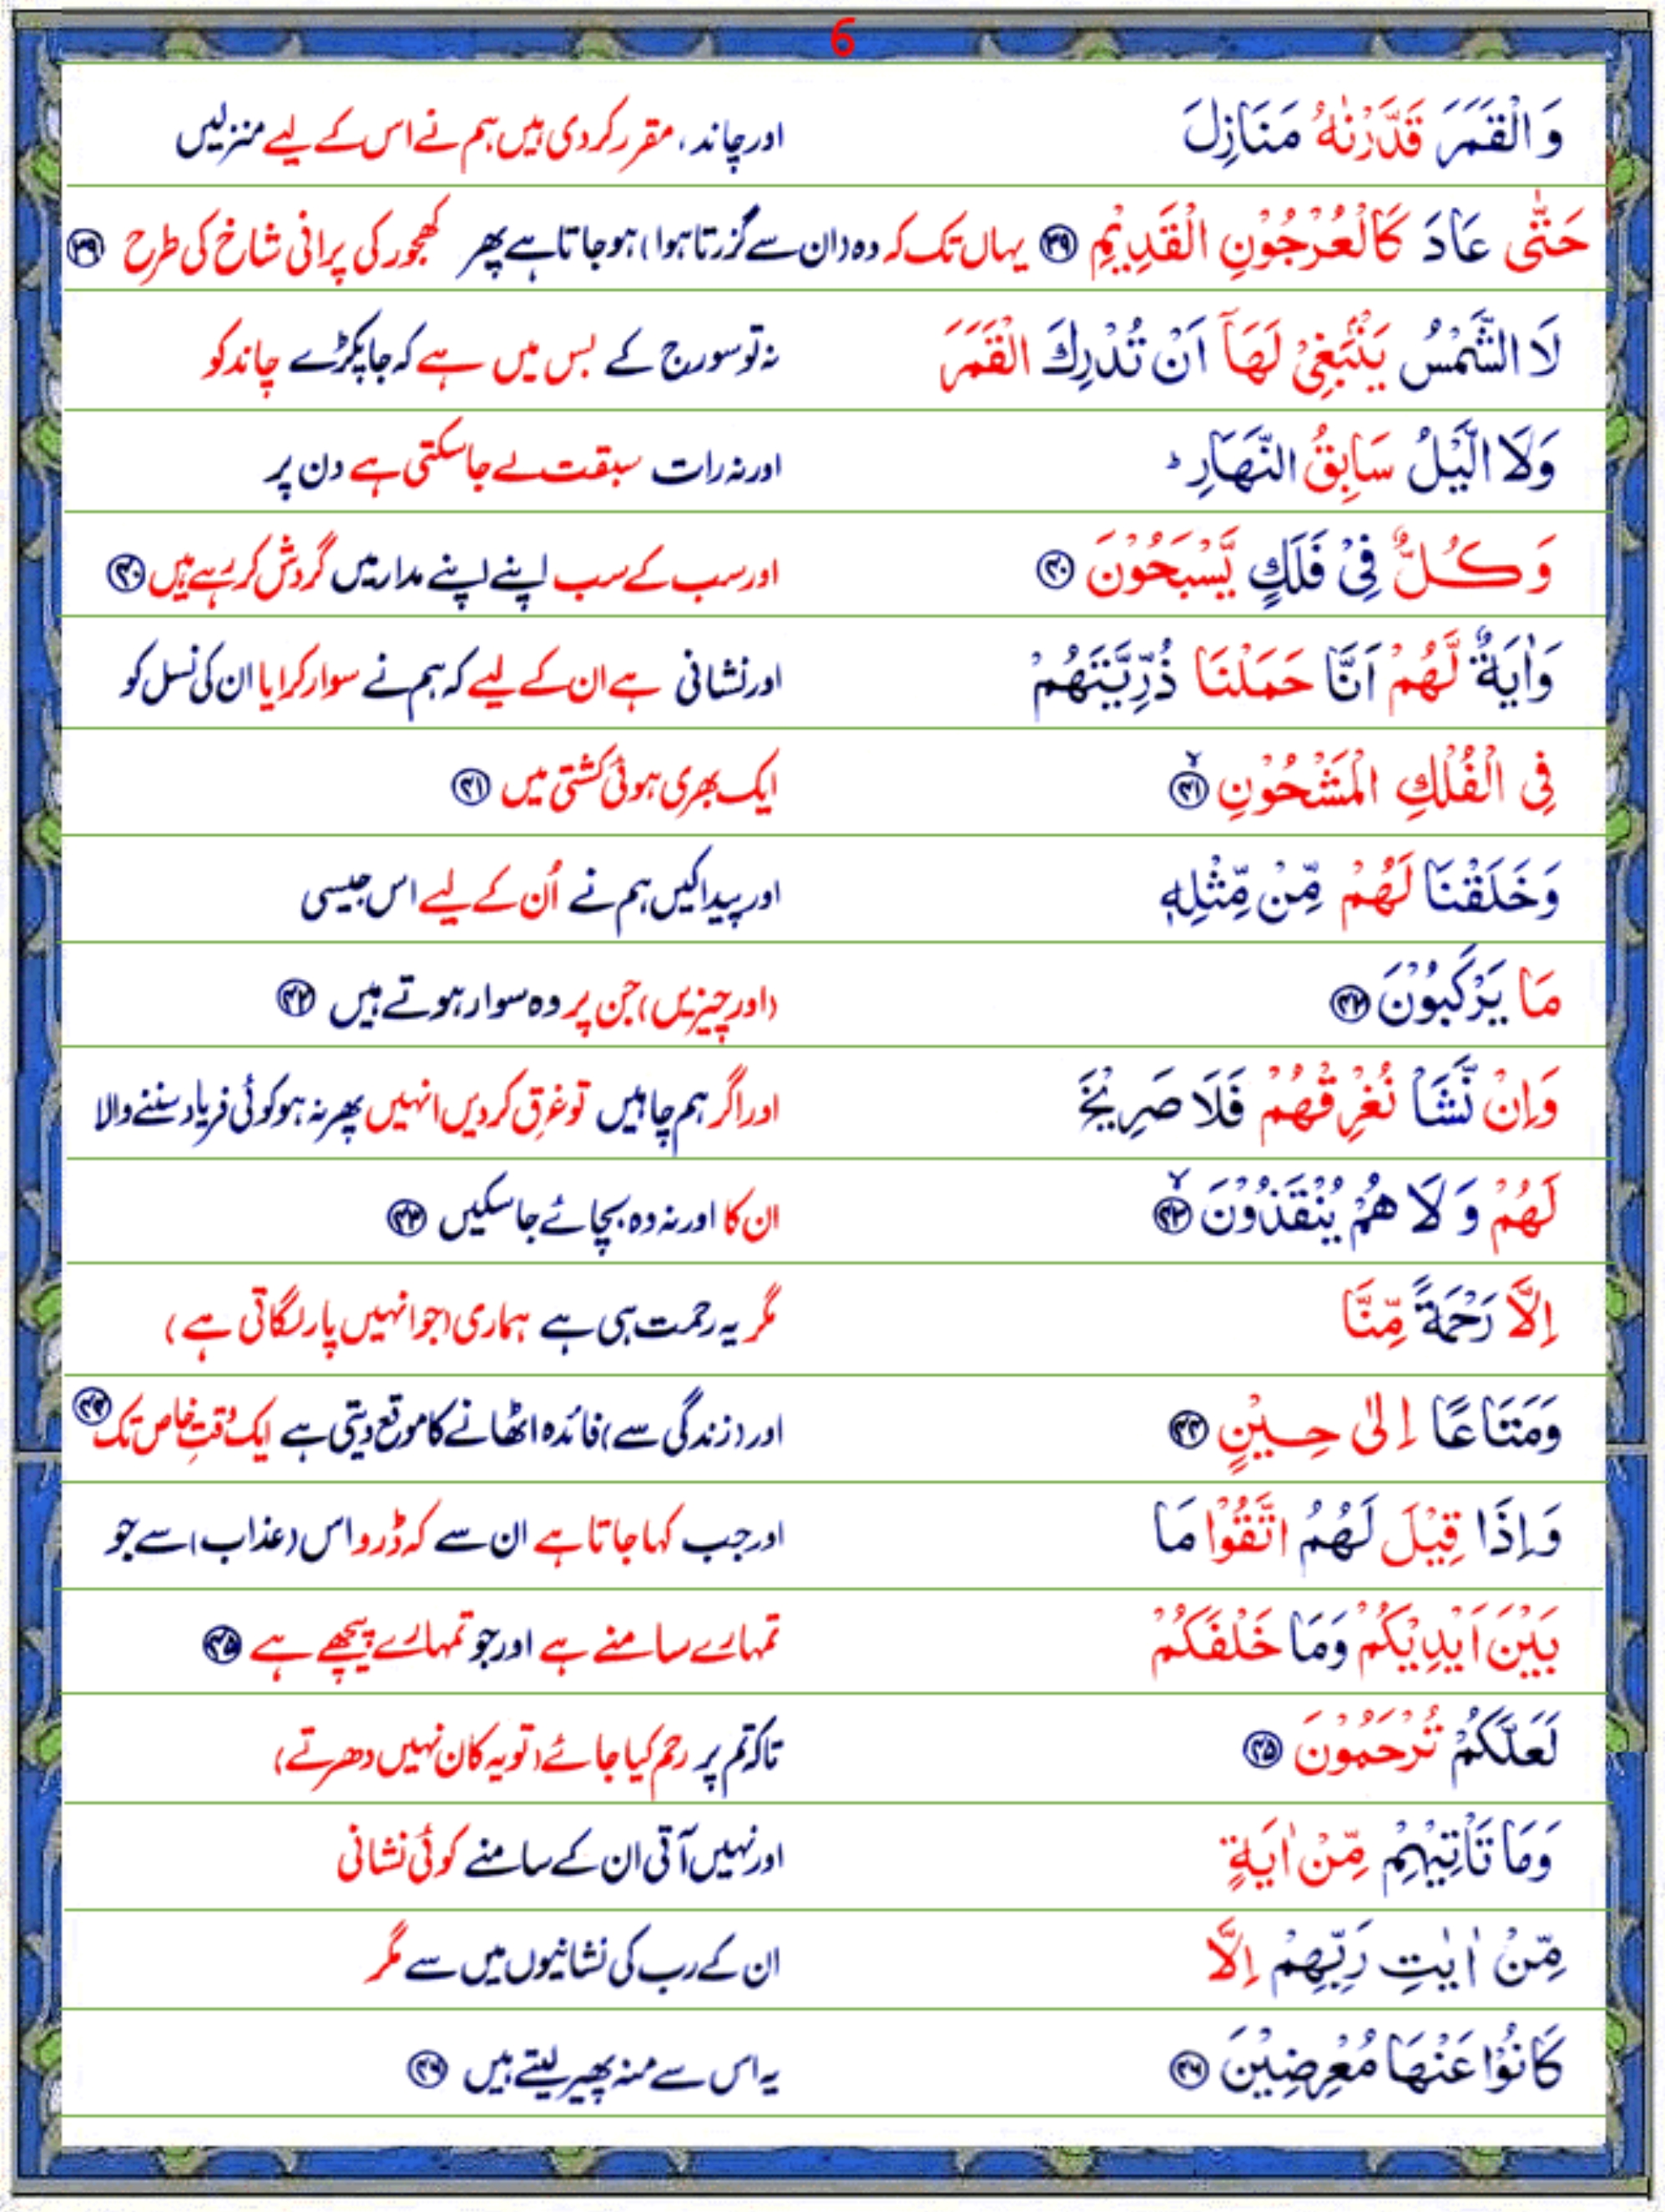 6
وَالْقَمَرَ قَدَّرْنٰهُ مَنَازِلَ اور چاند، مقرر کردی ہیں ہم نے اس کے لیے منزلیں
حَتّٰى عَادَ كَالْعُرْجُوْنِ الْقَدِيْمِ ﴿۳۹﴾ یہاں تک کہ وہ (ان سے گزرتا ہوا) ہوجاتا ہے پھر کھجور کی پرانی شاخ کی طرح ﴿۳۹﴾
لَا الشَّمْسُ يَنْۢبَغِىْ لَهَاۤ اَنْ تُدْرِكَ الْقَمَرَ نہ تو سورج کے بس میں ہے کہ جاپکڑے چاند کو
وَلَا الَّيْلُ سَابِقُ النَّهَارِ ؕ اور نہ رات سبقت لے جاسکتی ہے دن پر
وَكُلٌّ فِىْ فَلَكٍ يَّسْبَحُوْنَ ﴿۴۰﴾ اور سب کے سب اپنے اپنے مدار میں گردش کررہے ہیں ﴿۴۰﴾
وَاٰيَةٌ لَّهُمْ اَنَّا حَمَلْنَا ذُرِّيَّتَهُمْ اور نشانی ہے ان کے لیے کہ ہم نے سوار کرایا ان کی نسل کو
فِى الْفُلْكِ الْمَشْحُوْنِ ۙ﴿۴۱﴾ ایک بھری ہوئی کشتی میں ﴿۴۱﴾
وَخَلَقْنَا لَهُمْ مِّنْ مِّثْلِهٖ اور پیدا کیں ہم نے اُن کے لیے اس جیسی
مَا يَرْكَبُوْنَ ﴿۴۲﴾ (اور چیزیں) جن پر وہ سوار ہوتے ہیں ﴿۴۲﴾
وَاِنْ نَّشَاْ نُغْرِقْهُمْ فَلَا صَرِيْخَ اور اگر ہم چاہیں تو غرق کردیں انہیں پھر نہ ہو کوئی فریاد سننے والا
لَهُمْ وَلَا هُمْ يُنْقَذُوْنَ ۙ﴿۴۳﴾ ان کا اور نہ وہ بچائے جاسکیں ﴿۴۳﴾
اِلَّا رَحْمَةً مِّنَّا مگر یہ رحمت ہی ہے ہماری (جو انہیں پار لگاتی ہے)
وَمَتَاعًا اِلٰى حِيْنٍ ﴿۴۴﴾ اور (زندگی سے) فائدہ اٹھانے کا موقع دیتی ہے ایک وقتِ خاص تک ﴿۴۴﴾
وَاِذَا قِيْلَ لَهُمُ اتَّقُوْا مَا اور جب کہا جاتا ہے ان سے کہ ڈرو اس (عذاب) سے جو
بَيْنَ اَيْدِيْكُمْ وَمَا خَلْفَكُمْ تمہارے سامنے ہے اور جو تمہارے پیچھے ہے ﴿۴۵﴾
لَعَلَّكُمْ تُرْحَمُوْنَ ﴿۴۵﴾ تاکہ تم پر رحم کیا جائے (تو یہ کان نہیں دھرتے)
وَمَا تَاْتِيْهِمْ مِّنْ اٰيَةٍ اور نہیں آتی ان کے سامنے کوئی نشانی
مِّنْ اٰيٰتِ رَبِّهِمْ اِلَّا ان کے رب کی نشانیوں میں سے مگر
كَانُوْا عَنْهَا مُعْرِضِيْنَ ﴿۴۶﴾ یہ اس سے منہ پھیر لیتے ہیں ﴿۴۶﴾